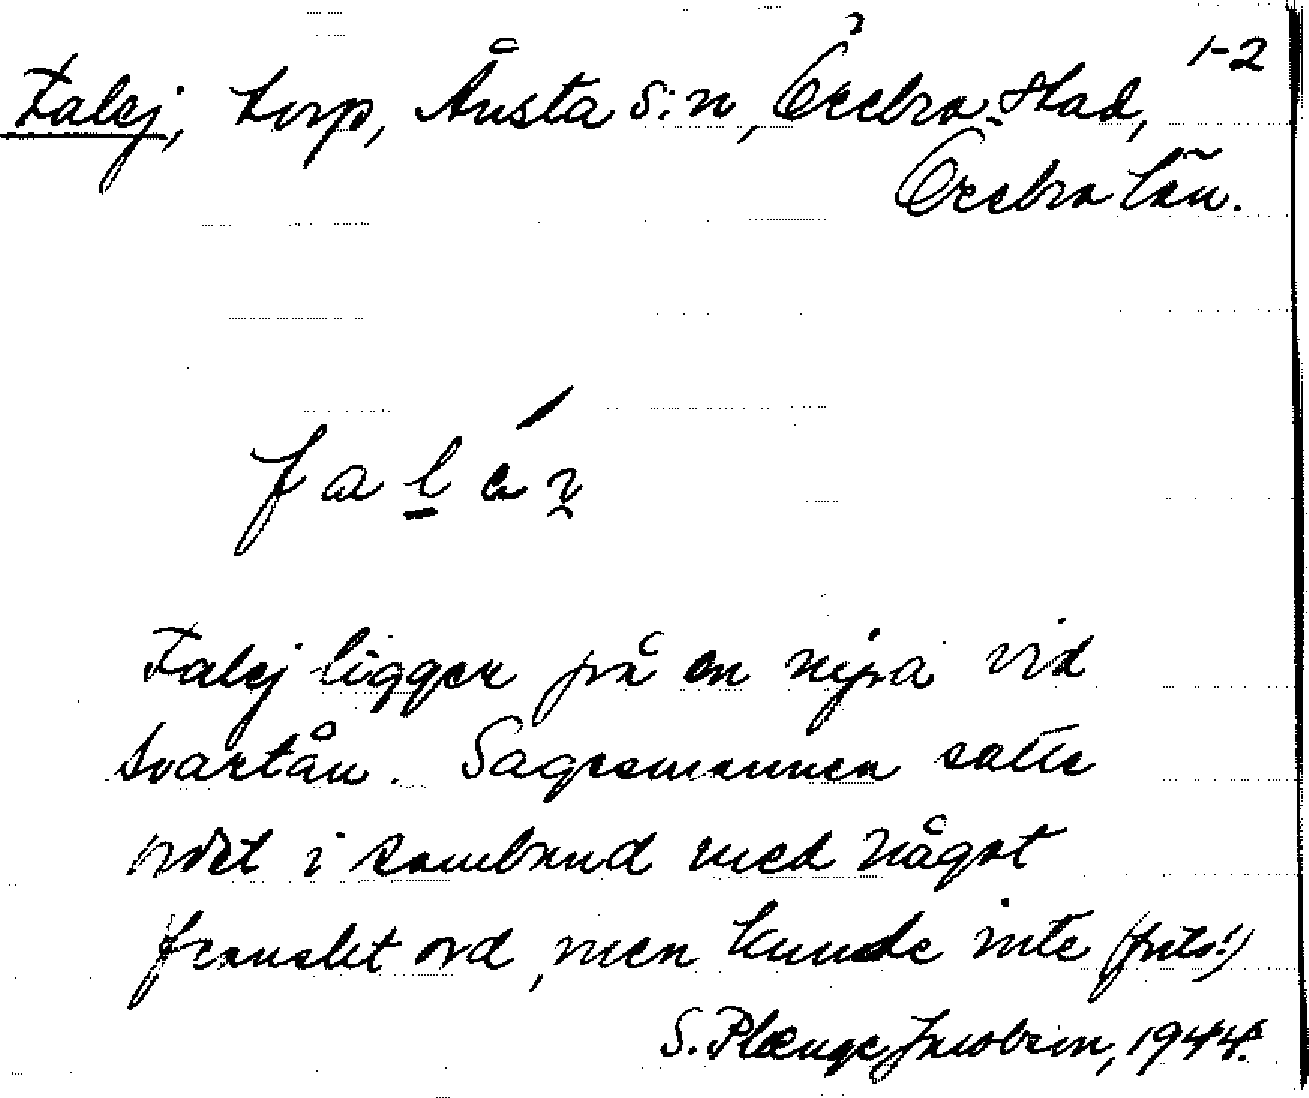 1-2
Falej, torp, Ånsta s:n, Örebro stad,
Örebro län.
falej
Falej ligger på en nipa vid
Svartån. Sagesmannen satte
ordet i samband med något
franskt ord, men kunde inte (forts!)
S. Plænge Jacobson, 1944.